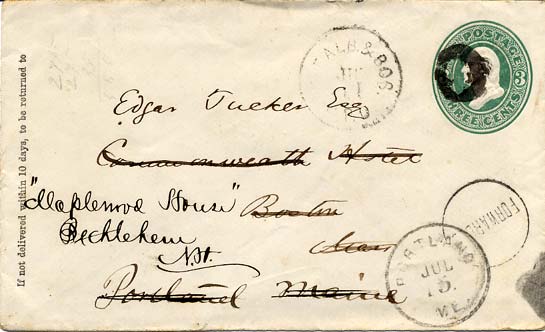 If not delivered within 10 days, to be returned to
ALB. & BOS.
JUL
11
U.S. POSTAGE
THREE CENTS
3
Edgar Tucker Esq
Commonwealth Hotel
"Maplewood House" Boston
Bethlehem Mass
N.H.
Portland Maine
FORWARD
PORTLAND
JUL
15
ME.